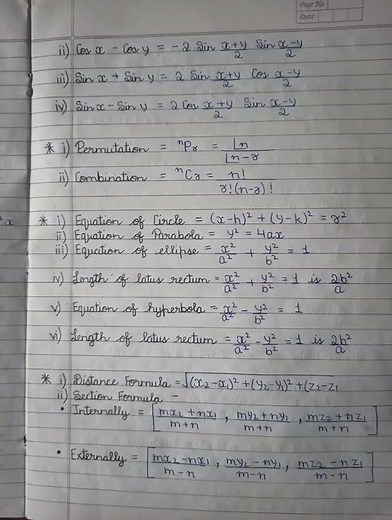 Page No.
Date
ii) Cos x - Cos y = -2 Sin x+y/2 Sin x-y/2
iii) Sin x + Sin y = 2 Sin x+y/2 Cos x-y/2
iv) Sin x - Sin y = 2 Cos x+y/2 Sin x-y/2
* i) Permutation = ⁿPr = |n / |n-r
ii) Combination = ⁿCr = n! / r!(n-r)!
* i) Equation of Circle = (x-h)² + (y-k)² = r²
ii) Equation of Parabola = y² = 4ax
iii) Equation of ellipse = x²/a² + y²/b² = 1
iv) Length of latus rectum = x²/a² + y²/b² = 1 is 2b²/a
v) Equation of hyperbola = x²/a² - y²/b² = 1
vi) Length of latus rectum = x²/a² - y²/b² = 1 is 2b²/a
* i) Distance Formula = √(x₂-x₁)² + (y₂-y₁)² + (z₂-z₁
ii) Section Formula -
• Internally = [mx₂+nx₁/m+n, my₂+ny₁/m+n, mz₂+nz₁/m+n]
• Externally = [mx₂-nx₁/m-n, my₂-ny₁/m-n, mz₂-nz₁/m-n]